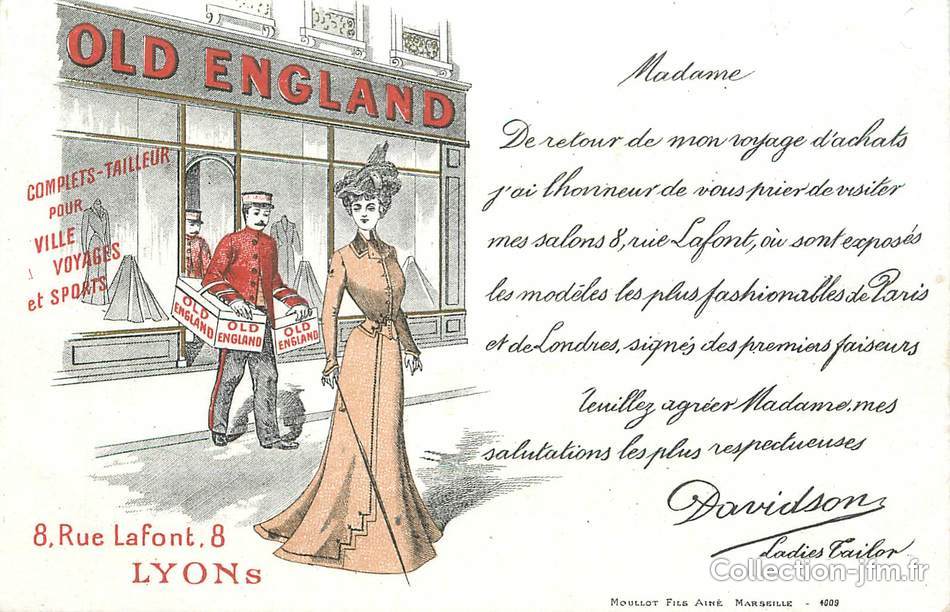 OLD ENGLAND
COMPLETS-TAILLEUR
POUR
VILLE
VOYAGES
et SPORTS
OLD
ENGLAND
OLD
ENGLAND
OLD
ENGLAND
8, Rue Lafont, 8
LYONs
Madame
De retour de mon voyage d'achats
j'ai l'honneur de vous prier de visiter
mes salons 8, rue Lafont, où sont exposés
les modèles les plus fashionables de Paris
et de Londres, signés des premiers faiseurs
Veuillez agréer Madame, mes
salutations les plus respectueuses
Davidson
Ladies Tailor
Collection-jfm.fr
MOULLOT FILS AINÉ MARSEILLE - 4009